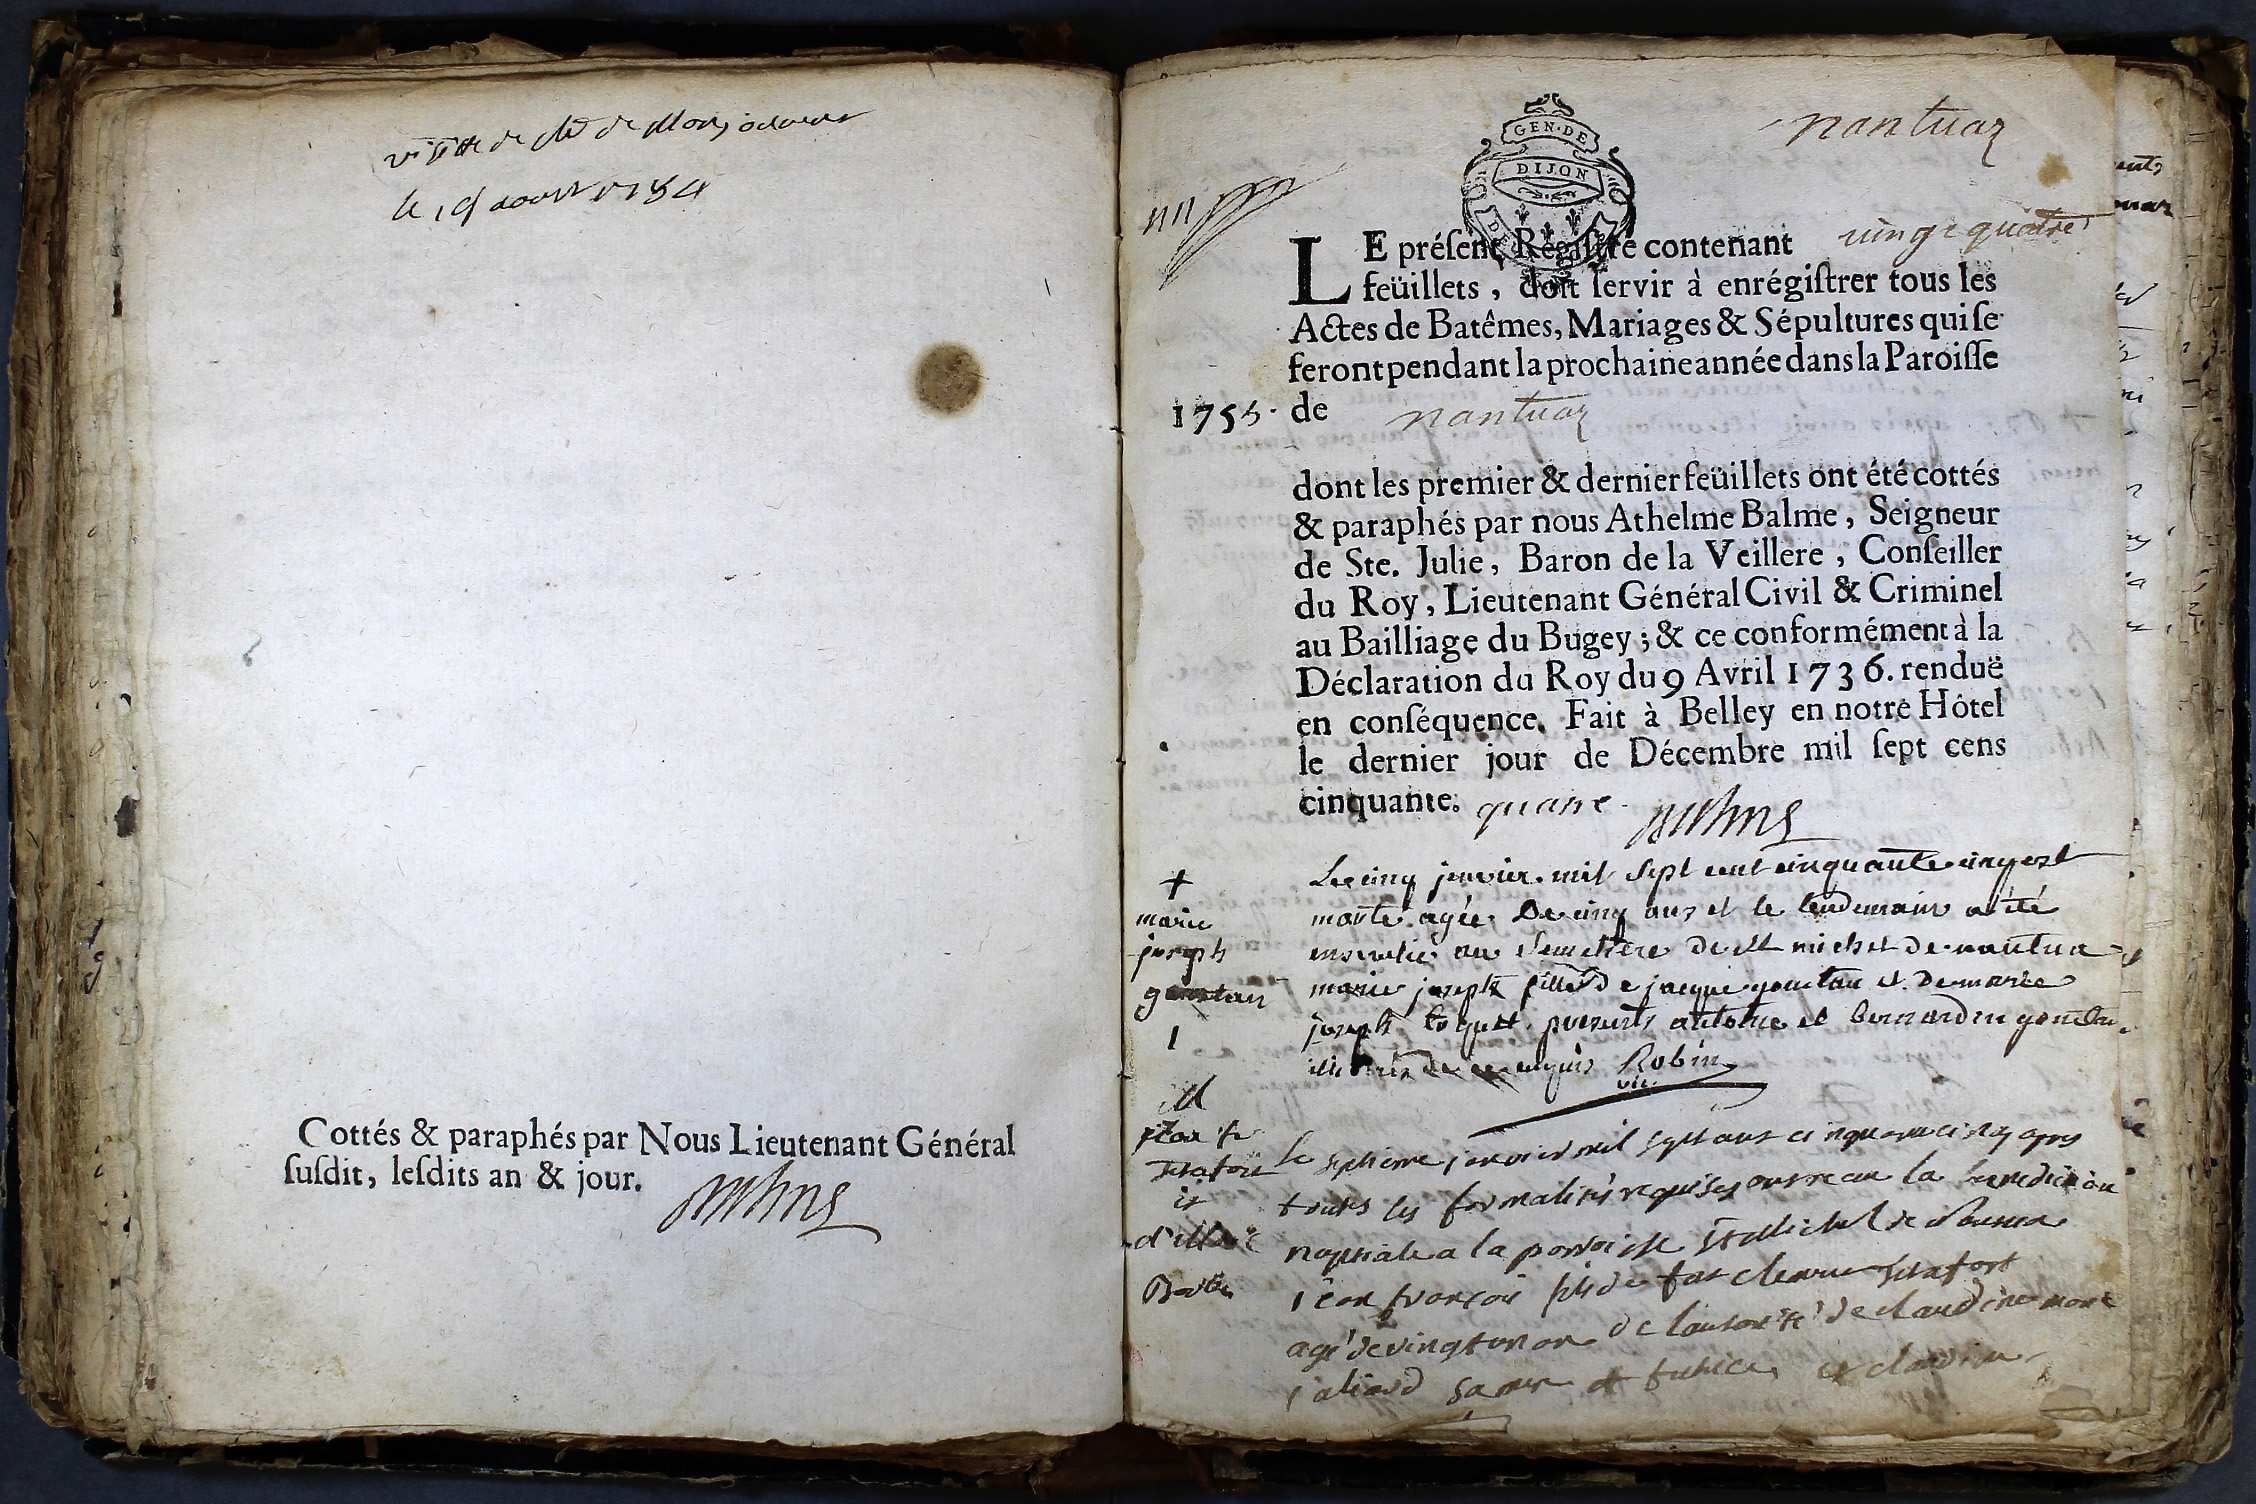 visitte de Mr de
le 19 aoust 1754
Cottés & paraphés par Nous Lieutenant Général
ſuſdit, leſdits an & jour.
nantuaz
GEN·DE
DIJON
LE préſent Regiſtre contenant vingt quatre
feüillets, doit ſervir à enrégiſtrer tous les
Actes de Batêmes, Mariages & Sépultures qui ſe
feront pendant la prochaine année dans la Paroiſſe
1755. de nantuaz
dont les premier & dernier feüillets ont été cottés
& paraphés par nous Athelme Balme, Seigneur
de Ste. Julie, Baron de la Veillere, Conſeiller
du Roy, Lieutenant Général Civil & Criminel
au Bailliage du Bugey; & ce conformément à la
Déclaration du Roy du 9 Avril 1736. renduë
en conſéquence. Fait à Belley en notre Hôtel
le dernier jour de Décembre mil ſept cens
cinquante. quatre
+
marie
joseph
goutan
1
Le cinq janvier mil sept cent cinquante cinq est
morte agée de cinq ans et le lendemain a été
au semettere de St michel de nantua
marie joseph fille de jacque goutan et de marie
joseph presents antoine et bernardin goutan
Robin
vic.
M
jean fr
et
le septieme janvier mil sept cent cinquante cinq apres
toutes les formalités requises ont recu la benediction
nuptiale a la parroisse St Michel de Nantua
jean françois fils de
agé de vingt un an de l'autorité de claudine
sa mere et tutrice et claudine